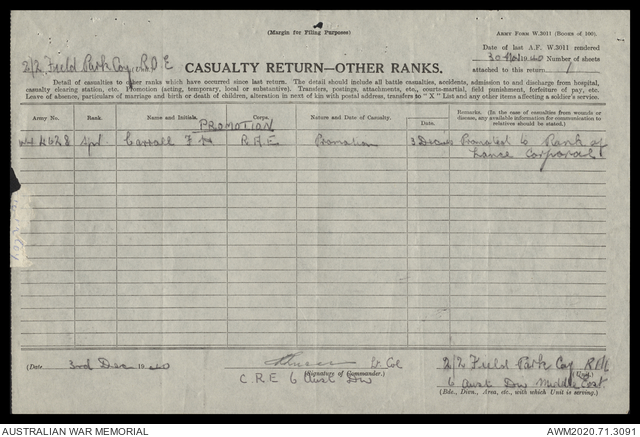 (Margin for Filing Purposes)
ARMY FORM W.3011 (BOOKS OF 100).
Date of last A.F. W.3011 rendered
2/2 Field Park Coy, R.A.E
30 Nov 1940 Number of sheets
CASUALTY RETURN—OTHER RANKS.
attached to this return 1
Detail of casualties to other ranks which have occurred since last return. The detail should include all battle casualties, accidents, admission to and discharge from hospital,
casualty clearing station, etc. Promotion (acting, temporary, local or substantive). Transfers, postings, attachments, etc., courts-martial, field punishment, forfeiture of pay, etc.
Leave of absence, particulars of marriage and birth or death of children, alteration in next of kin with postal address, transfers to "X" List and any other items affecting a soldier's service.
Army No. Rank. Name and Initials. Corps. Nature and Date of Casualty. Date. Remarks. (In the case of casualties from wounds or disease, any available information for communication to relatives should be stated.)
PROMOTION
4628 Spr Carroll R.A.E Promotion 3 Dec Promoted to Rank of
Lance Corporal
(Date 3rd Dec 1940
Lt Col
(Signature of Commander.)
C R E 6 Aust Div
2/2 Field Park Coy RAE
(Unit)
6 Aust Div Middle East
(Bde., Divn., Area, etc., with which Unit is serving.)
AUSTRALIAN WAR MEMORIAL
AWM2020.71.3091